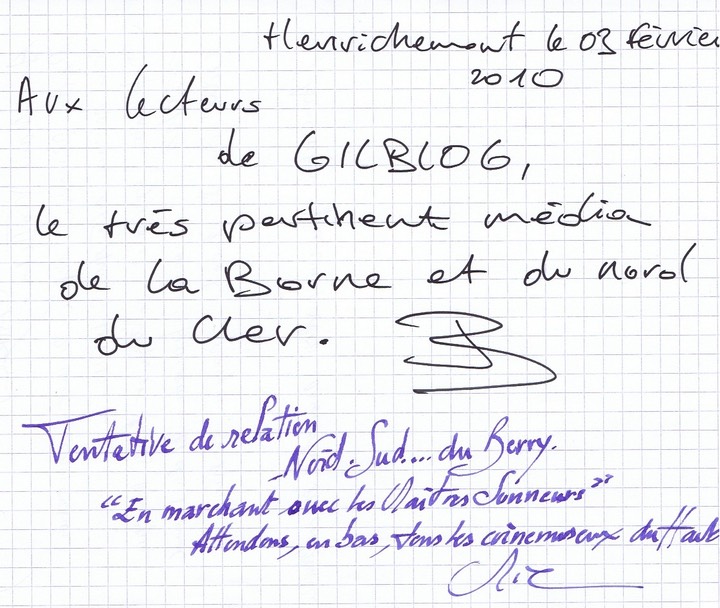 Henrichemont le 03 février
2010
Aux lecteurs
de GILBLOG,
le très pertinent média
de la Borne et du nord
du Cher.
Tentative de relation
Nord. Sud.... du Berry.
"En marchant avec les Maîtres Sonneurs"
Attendons, en bas, tous les cornemuseux du Haut